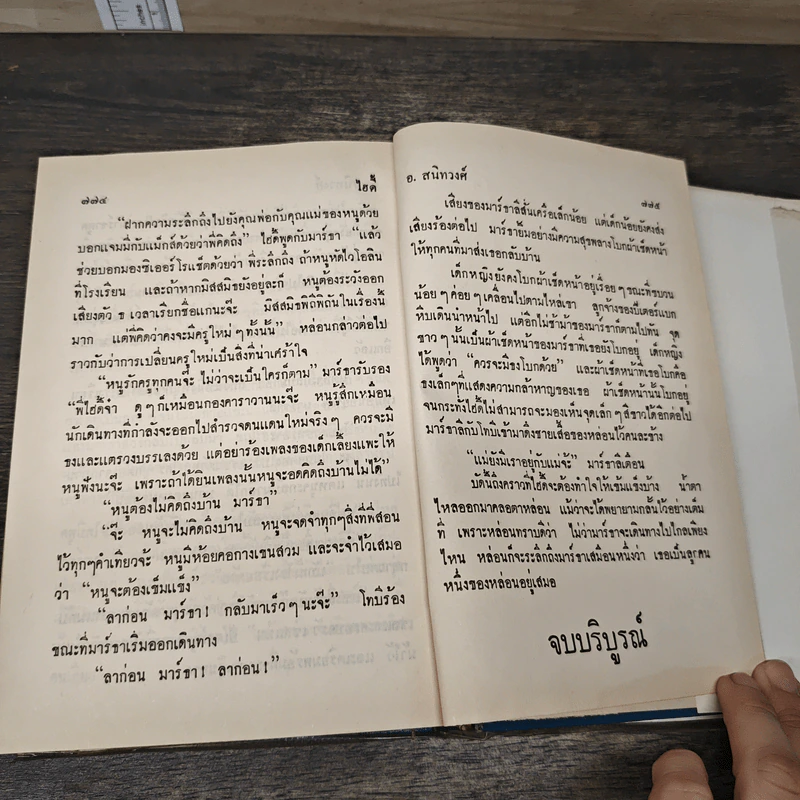 ๗๗๔
ไฮดี้
“ฝากความระลึกถึงไปยังคุณพ่อกับคุณแม่ของหนูด้วย
บอกแจมมี่กับแม็กส์ด้วยว่าพี่คิดถึง” ไฮดี้พูดกับมาร์ชา “แล้ว
ช่วยบอกมองซิเออร์โรแช็ตด้วยว่า พี่ระลึกถึง ถ้าหนูหัดไวโอลิน
ที่โรงเรียน และถ้าหากมิสสมิธยังอยู่ละก็ หนูต้องระวังออก
เสียงตัว ข เวลาเรียกชื่อแกนะจ๊ะ มิสสมิธพิถีพิถันในเรื่องนี้
มาก แต่พี่คิดว่าคงจะมีครูใหม่ๆทั้งนั้น” หล่อนกล่าวต่อไป
ราวกับว่าการเปลี่ยนครูใหม่เป็นสิ่งที่น่าเศร้าใจ
“หนูรักครูทุกคนจ้ะ ไม่ว่าจะเป็นใครก็ตาม” มาร์ชารับรอง
“พี่ไฮดี้จ๋า ดูๆก็เหมือนกองคาราวานนะจ๊ะ หนูรู้สึกเหมือน
นักเดินทางที่กำลังจะออกไปสำรวจดนแดนใหม่จริงๆ ควรจะมี
ธงและแตรวงบรรเลงด้วย แต่อย่าร้องเพลงของเด็กเลี้ยงแพะให้
หนูฟังนะจ๊ะ เพราะถ้าได้ยินเพลงนั้นหนูจะอดคิดถึงบ้านไม่ได้”
“หนูต้องไม่คิดถึงบ้าน มาร์ชา”
“จ๊ะ หนูจะไม่คิดถึงบ้าน หนูจะจดจำทุกๆสิ่งที่พี่สอน
ไว้ทุกๆคำเทียวจ้ะ หนูมีห้อยคอกางเขนสวม และจะจำไว้เสมอ
ว่า “หนูจะต้องเข็มแข็ง”
“ลาก่อน มาร์ชา! กลับมาเร็วๆนะจ๊ะ” โทบี้ร้อง
ขณะที่มาร์ชาเริ่มออกเดินทาง
“ลาก่อน มาร์ชา! ลาก่อน!”
อ. สนิทวงศ์
๗๗๕
เสียงของมาร์ชาสีสั่นเครือเล็กน้อย แต่เด็กน้อยยังคงส่ง
เสียงร้องต่อไป มาร์ชายิ้มอย่างมีความสุขพลางโบกผ้าเช็ดหน้า
ให้ทุกคนที่มาส่งเธอกลับบ้าน
เด็กหญิงยังคงโบกผ้าเช็ดหน้าอยู่เรื่อยๆขณะที่ขบวน
น้อยๆค่อยๆเคลื่อนไปตามไหล่เขา ลูกจ้างของปีเตอร์แบก
หีบเดินนำหน้าไป แต่อีกไม่ช้าม้าของมาร์ชาก็ตามไปทัน จุด
ขาวๆนั้นเป็นผ้าเช็ดหน้าของมาร์ชาที่เธอยังโบกอยู่ เด็กหญิง
ได้พูดว่า “ควรจะมีธงโบกด้วย” และผ้าเช็ดหน้าที่เธอโบกคือ
ธงเล็กๆที่แสดงความกล้าหาญของเธอ ผ้าเช็ดหน้านั้นโบกอยู่
จนกระทั่งไฮดี้ไม่สามารถจะมองเห็นจุดเล็กๆสีขาวได้อีกต่อไป
มาร์ชาลีกับโทบี้เข้ามาดึงชายเสื้อของหล่อนไว้คนละข้าง
“แม่ยังมีเราอยู่กับแม่จ้ะ” มาร์ชาลีเตือน
บัดนี้ถึงคราวที่ไฮดี้จะต้องทำใจให้เข้มแข็งบ้าง น้ำตา
ไหลออกมาคลอตาหล่อน แม้ว่าจะได้พยายามกลั้นไว้อย่างเต็ม
ที่ เพราะหล่อนทราบดีว่า ไม่ว่ามาร์ชาจะเดินทางไปไกลเพียง
ไหน หล่อนก็จะระลึกถึงมาร์ชาเสมือนหนึ่งว่า เธอเป็นลูกคน
หนึ่งของหล่อนอยู่เสมอ
จบบริบูรณ์